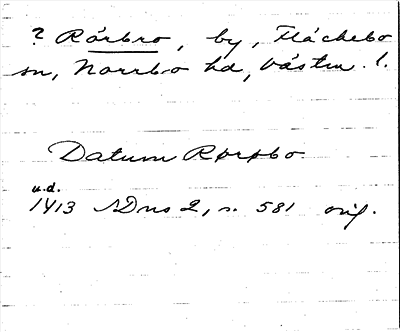 ? Rörbro, by, Fläckebo
sn, Norrbo hd, Västm. l.
Datum Rørbo
u.d.
1413 SDns 2, s. 581 orig.